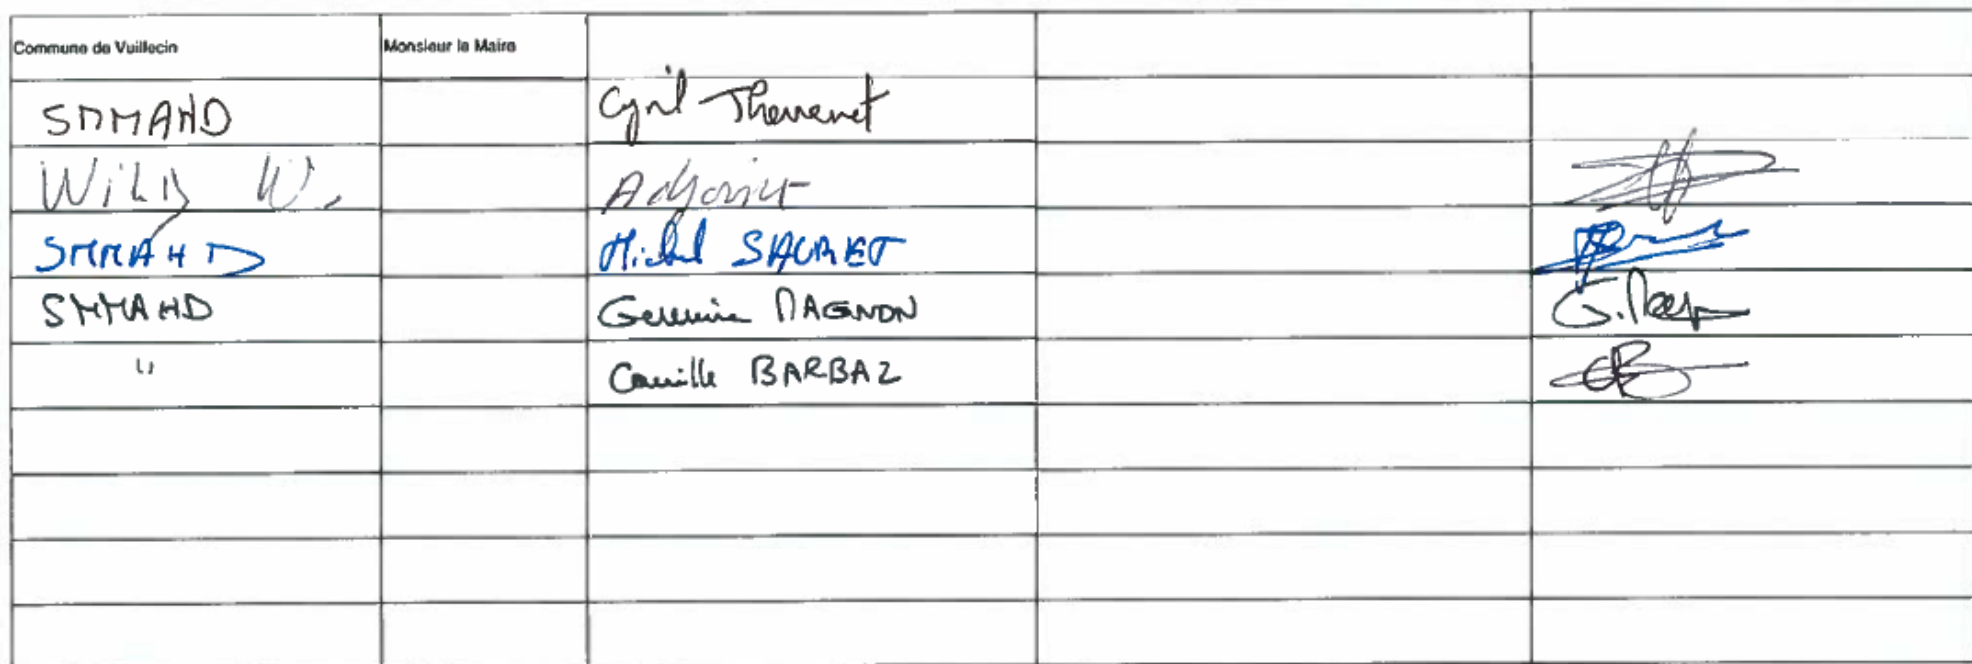 Commune de Vuillecin Monsieur le Maire
SMMAHD Cyril Thevenet
Willy W. Adjoint
SMMAHD Michel SAURET
SMMAHD Germine MAGNON G.
" Camille BARBAZ